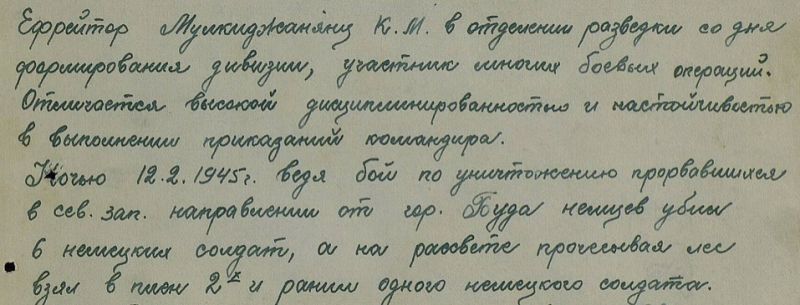 Ефрейтор Мулкиджанянц К.М. в отделении разведки со дня
формирования дивизии, участник многих боевых операций.
Отличается высокой дисциплинированностью и настойчивостью
в выполнении приказаний командира.
Ночью 12.2.1945г. ведя бой по уничтожению прорвавшихся
в сев. зап. направлении от гор. Буда немцев убил
6 немецких солдат, а на рассвете прочесывая лес
взял в плен 2х и ранил одного немецкого солдата.